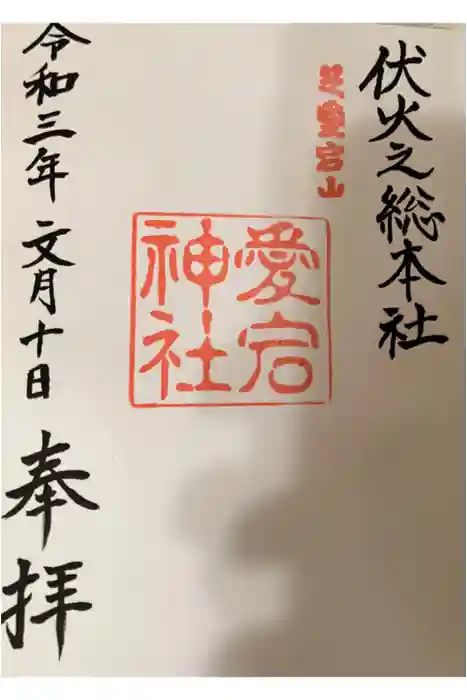 伏火之総本社
芝愛宕山
愛宕
神社
令和三年文月十日
奉拝